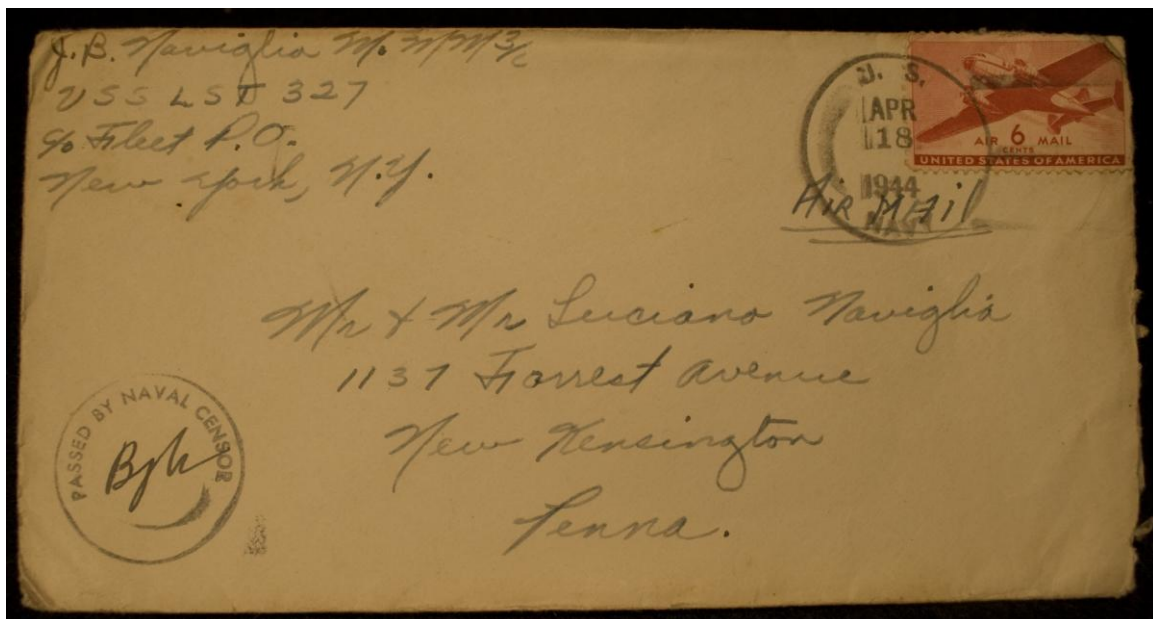 J.B. Naviglia M. MM3/c
USS LST 327
c/o Fleet P.O.
New York, N.Y.
U. S.
APR
18
1944
NAVY
AIR 6 MAIL
CENTS
UNITED STATES OF AMERICA
AIR MAil
Mr & Mr Luciano Naviglia
1137 Forrest Avenue
New Kensington
Penna.
PASSED BY NAVAL CENSOR